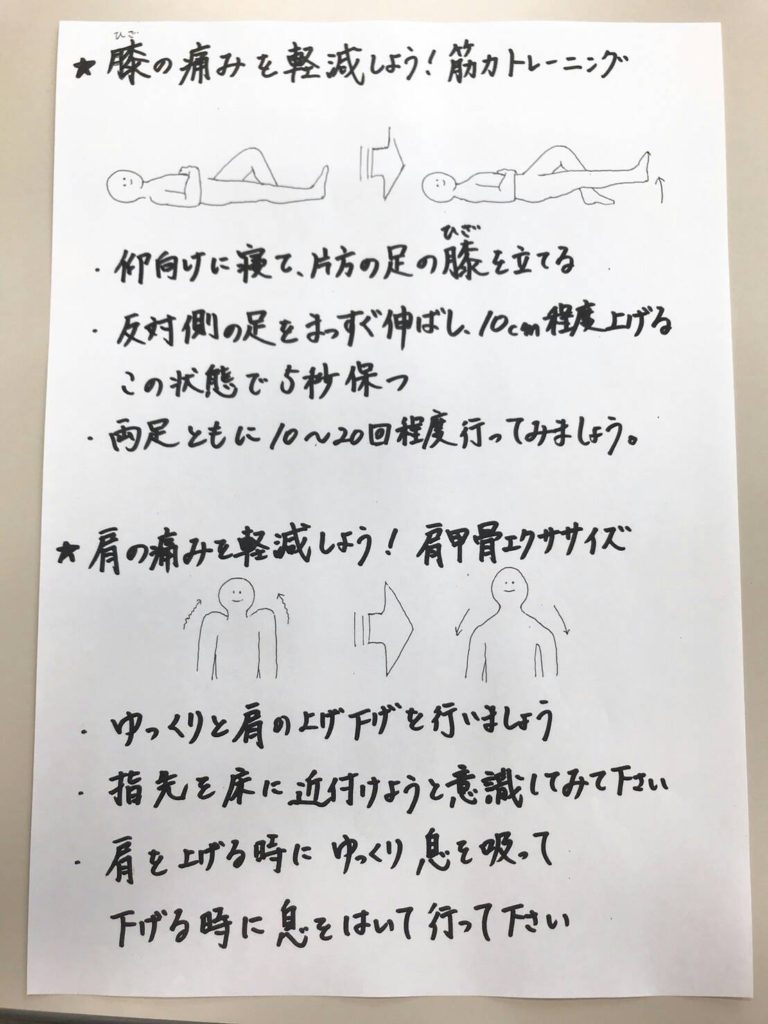 ★ 膝の痛みを軽減しよう！筋力トレーニング
ひざ
・仰向けに寝て、片方の足の膝を立てる
ひざ
・反対側の足をまっすぐ伸ばし、10cm程度上げる
この状態で5秒保つ
・両足ともに10〜20回程度行ってみましょう。
★ 肩の痛みを軽減しよう！ 肩甲骨エクササイズ
・ゆっくりと肩の上げ下げを行いましょう
・指先を床に近付けようと意識してみて下さい
・肩を上げる時に ゆっくり 息を吸って
下げる時に息をはいて行って下さい